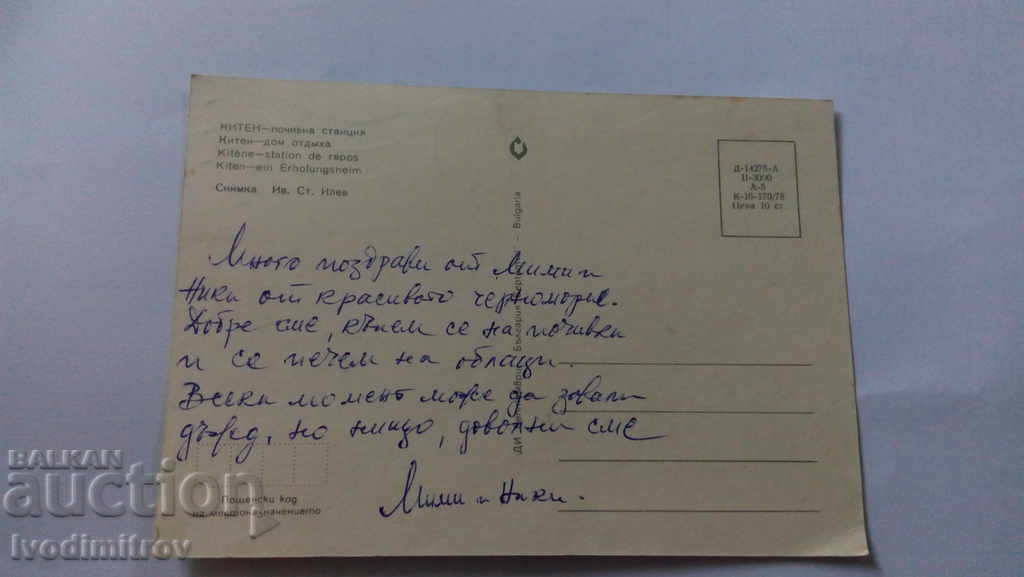 КИТЕН—почивна станция
Китен—дом отдыха
Kitène—station de repos
Kiten—ein Erholungsheim
Снимка Ив. Ст. Илев
Д-14275-А
II-3000
А-5
К-16-170/78
Цена 10 ст.
Много поздрави от Мими и
Ники от красивото черноморие.
Добре сме, къпем се на почивки
и се печем на облаци.
Всеки момент може да завали
дъжд, но нищо, доволни сме
Мими и Ники.
Пощенски код
на местоназначението
Bulgaria
България
ДИ
BALKAN
auction
Ivodimitrov